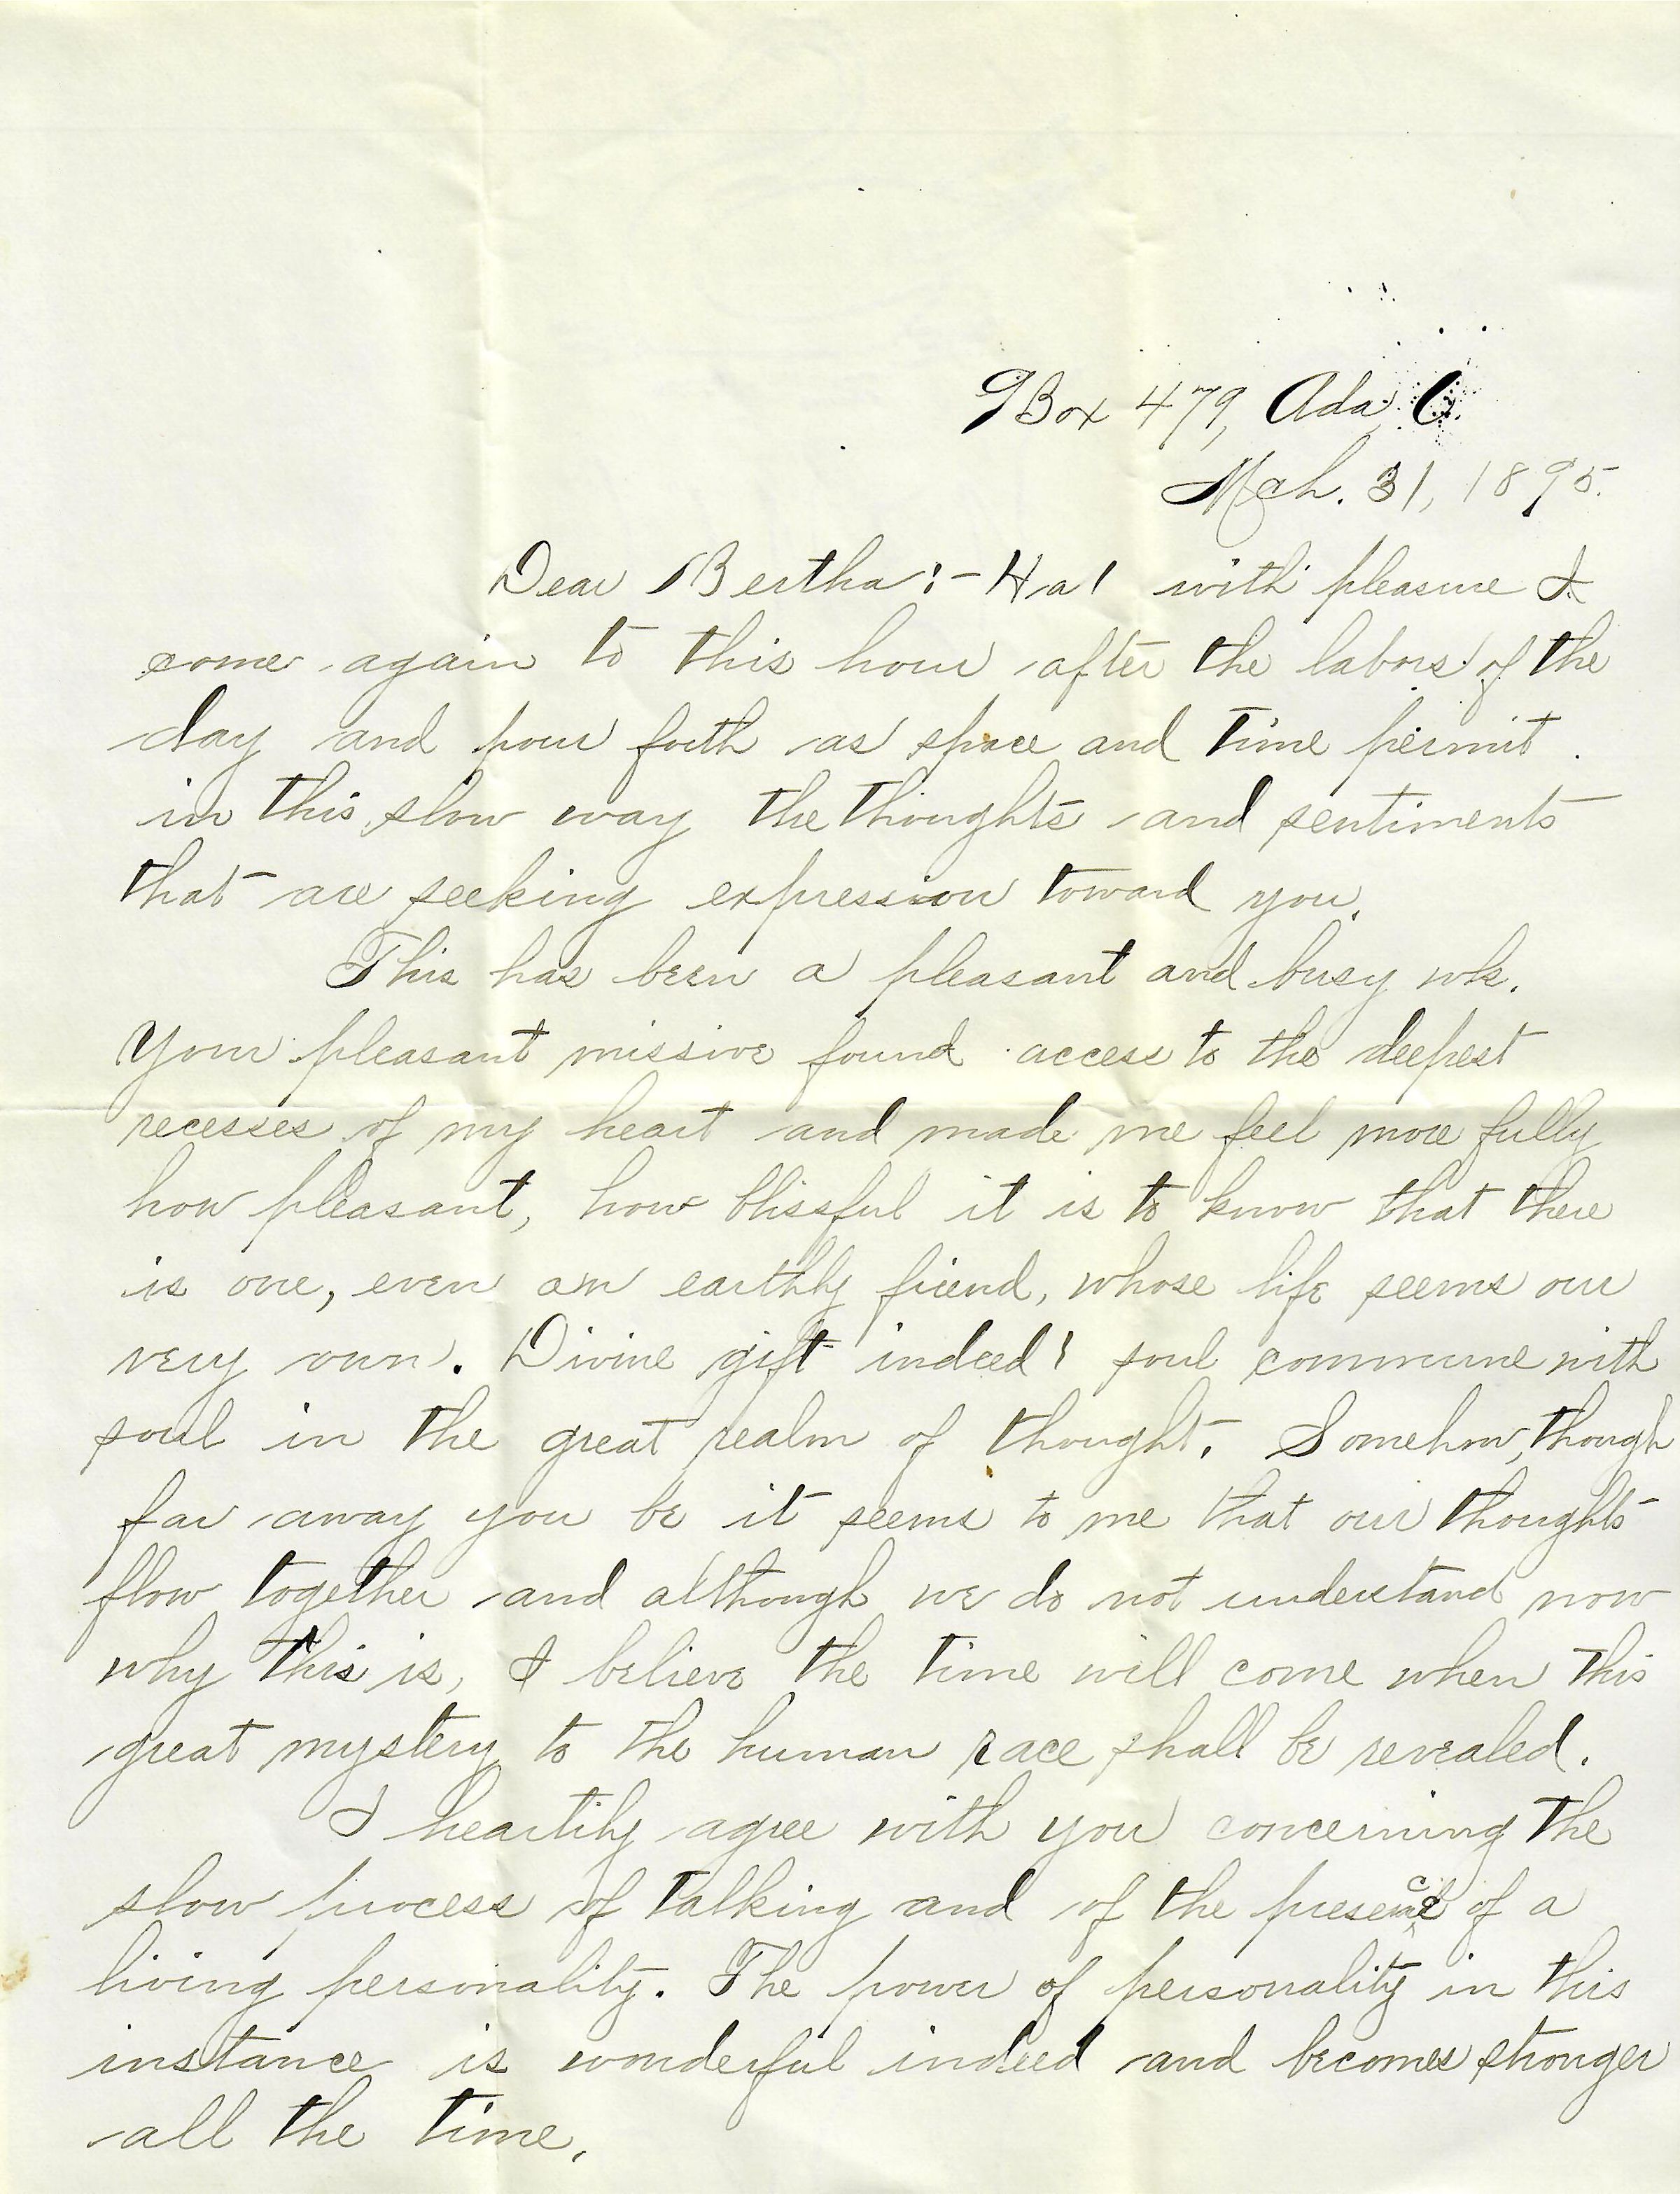 Box 479, Ada, O.
Mch. 31, 1895.
Dear Bertha:- Ha! with pleasure I
come again to this hour after the labors of the
day and pour forth as space and time permit
in this slow way the thoughts and sentiments
that are seeking expression toward you.
This has been a pleasant and busy wk.
Your pleasant missive found access to the deepest
recesses of my heart and made me feel more fully
how pleasant, how blissful it is to know that there
is one, even an earthly friend, whose life seems our
very own. Divine gift indeed! soul commune with
soul in the great realm of thought. Somehow, though
far away you be it seems to me that our thoughts
flow together and although we do not understand now
why this is, I believe the time will come when this
great mystery to the human race shall be revealed.
I heartily agree with you concerning the
slow process of talking and of the presence of a
living personality. The power of personality in this
instance is wonderful indeed and becomes stronger
all the time.